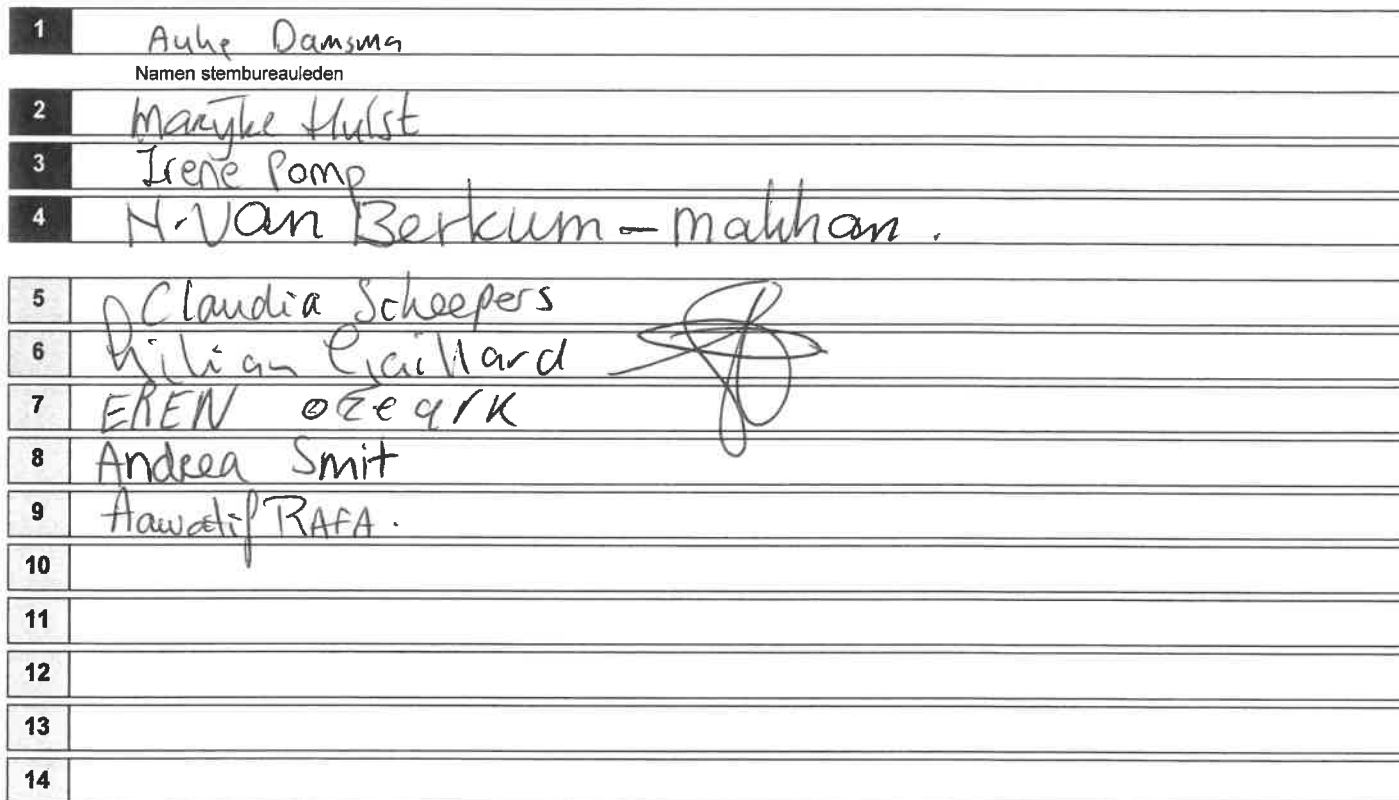 1 Auke Damsma
Namen stembureauleden
2 Marijke Hulst
3 Irene Pomp
4 N. Van Berkum - makhan.
5 Claudia Scheepers
6 Gaillard
7 EREN
8 Andrea Smit
9 Hawatif RAFA.
10
11
12
13
14